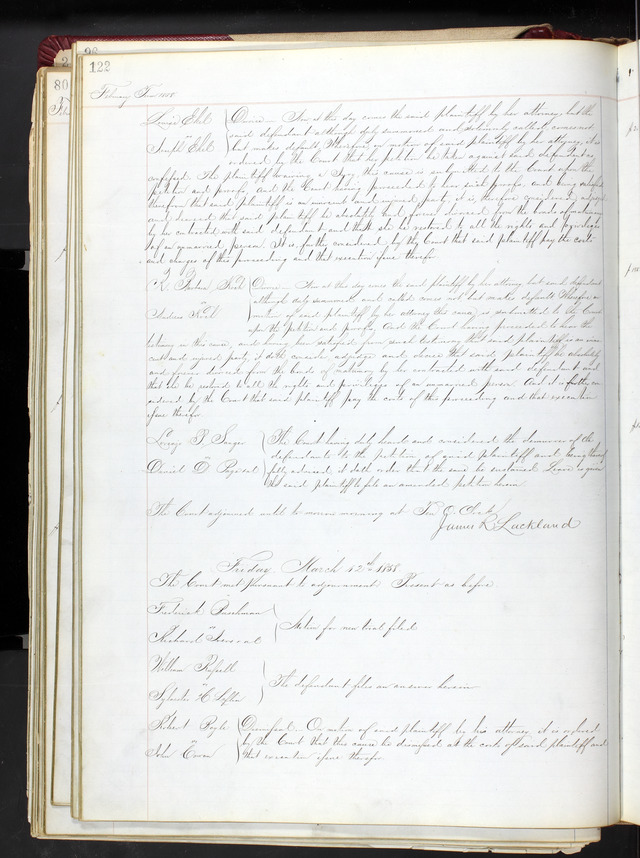 122
80
February Term 1858
Louisa Ehl Divorce. Now at this day comes the said plaintiff by her attorney, but the
vs said defendant although duly summoned and solemnly called, comes not
Joseph Ehl but makes default. Wherefore on motion of said plaintiff by her attorney, it is
ordered by the Court that the petition be taken against said defendant as
confessed. The plaintiff waiving a Jury, this cause is submitted to the Court upon the
petition and proofs, and the Court having proceeded to hear such proofs, and being satisfied
therefrom that said plaintiff is an innocent and injured party, it is, therefore considered, adjudged
and decreed that said plaintiff be absolutely and forever divorced from the bonds of matrimony
by her contracted with said defendant, and that she be restored to all the rights and privileges
of an unmarried person. It is further considered by the Court that said plaintiff pay the costs
and charges of this proceeding and that execution issue therefor.
Divorce. Now at this day comes the said plaintiff by her attorney but said defendant
vs although duly summoned and called comes not but makes default. Wherefore on
motion of said plaintiff by her attorney this cause is submitted to the Court
upon the petition and proofs, And the Court having proceeded to hear the
testimony in this cause, and being satisfied from such testimony that said plaintiff is an inno
cent and injured party, it doth consider adjudge and decree that said plaintiff be absolutely
and forever divorced from the bonds of matrimony by her contracted with said defendant and
that she be restored to all the rights and privileges of an unmarried person. And it is further con
sidered by the Court that said plaintiff pay the costs of this proceeding and that execution
issue therefor
George P. The Court having duly heard and considered the demurrer of the
vs defendants to the petition of said plaintiff and being thereof
Daniel D. fully advised it doth order that the same be sustained. Leave is given
the said plaintiff to file an amended petition herein
The Court adjourned until to morrow morning at Ten O. Clock
James R Lackland
Friday March 12th 1858
The Court met pursuant to adjournment Present as before
Frederick
vs Motion for new trial filed
Richard
William
vs The defendant files an answer herein
Sylvester H.
Robert Dismissed. On motion of said plaintiff by his attorney it is ordered
vs by the Court that this cause be dismissed at the costs of said plaintiff and
John that execution issue therefor.